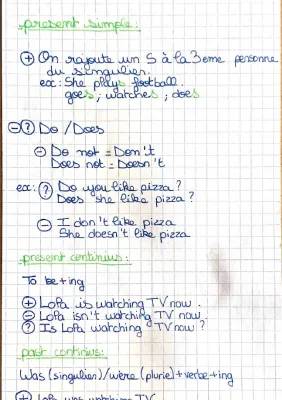 present simple:
⊕ On rajoute un S à la 3eme personne
du singulier.
ex: She plays football.
goes; watches; does
⊖ ? Do / Does
⊖ Do not = Don't
Does not = Doesn't
ex: ? Do you like pizza?
Does she like pizza?
⊖ I don't like pizza
She doesn't like pizza
present continius:
To be + ing
⊕ Lola is watching TV now.
⊖ Lola isn't watching TV now.
? Is Lola watching TV now?
past continius:
Was (singulier) / were (pluriel) + verbe + ing
⊕ Lola was watching TV